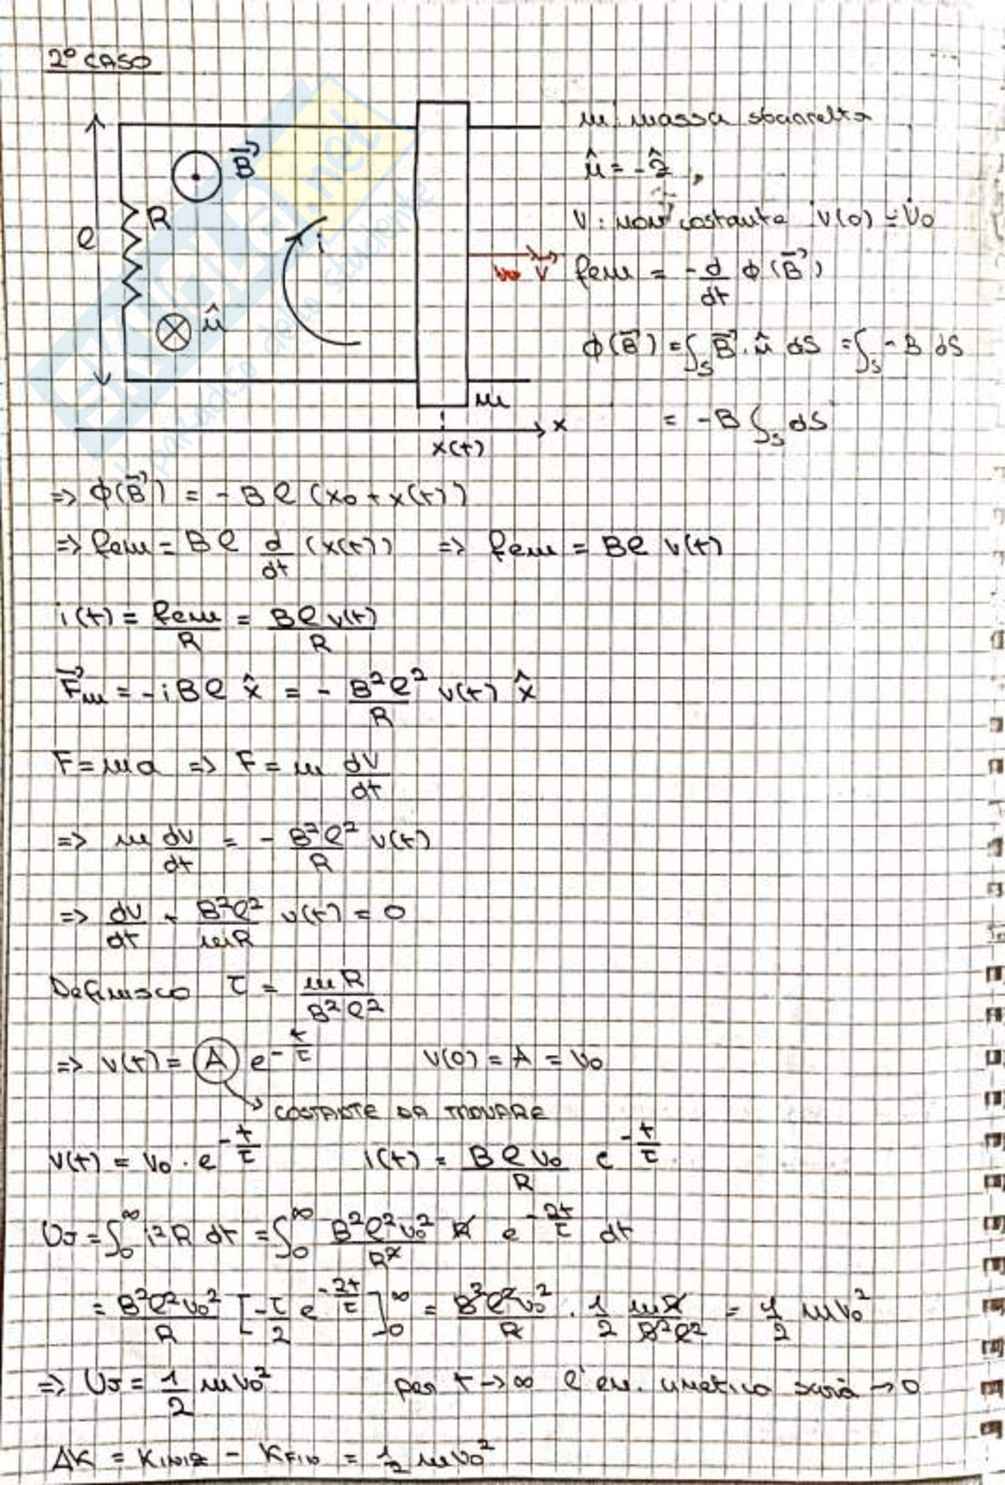 2° CASO
m: massa sbarretta
û = -ẑ
v: non costante v(0) = v₀
fem = -d/dt φ(B⃗)
φ(B⃗) = ∫_S B⃗ · û dS = ∫_S -B dS
= -B ∫_S dS
B⃗
R
l
i
v⃗
û
m
x
x(t)
=> φ(B⃗) = -Bl (x₀ + x(t))
=> fem = Bl d/dt (x(t)) => fem = Bl v(t)
i(t) = fem/R = Bl v(t)/R
F⃗m = -iBl x̂ = - B²l²/R v(t) x̂
F = ma => F = m dv/dt
=> m dv/dt = - B²l²/R v(t)
=> dv/dt + B²l²/mR v(t) = 0
Definisco τ = mR/B²l²
=> v(t) = A e^(-t/τ) v(0) = A = v₀
COSTANTE DA TROVARE
v(t) = v₀ · e^(-t/τ) i(t) = Blv₀/R e^(-t/τ)
UJ = ∫₀^∞ i²R dt = ∫₀^∞ B²l²v₀²/R² R e^(-2t/τ) dt
= B²l²v₀²/R [-τ/2 e^(-2t/τ)]₀^∞ = B²l²v₀²/R · 1/2 mR/B²l² = 1/2 mv₀²
=> UJ = 1/2 mv₀² per t → ∞ l'en. cinetica sarà → 0
ΔK = KINIZ - KFIN = 1/2 mv₀²